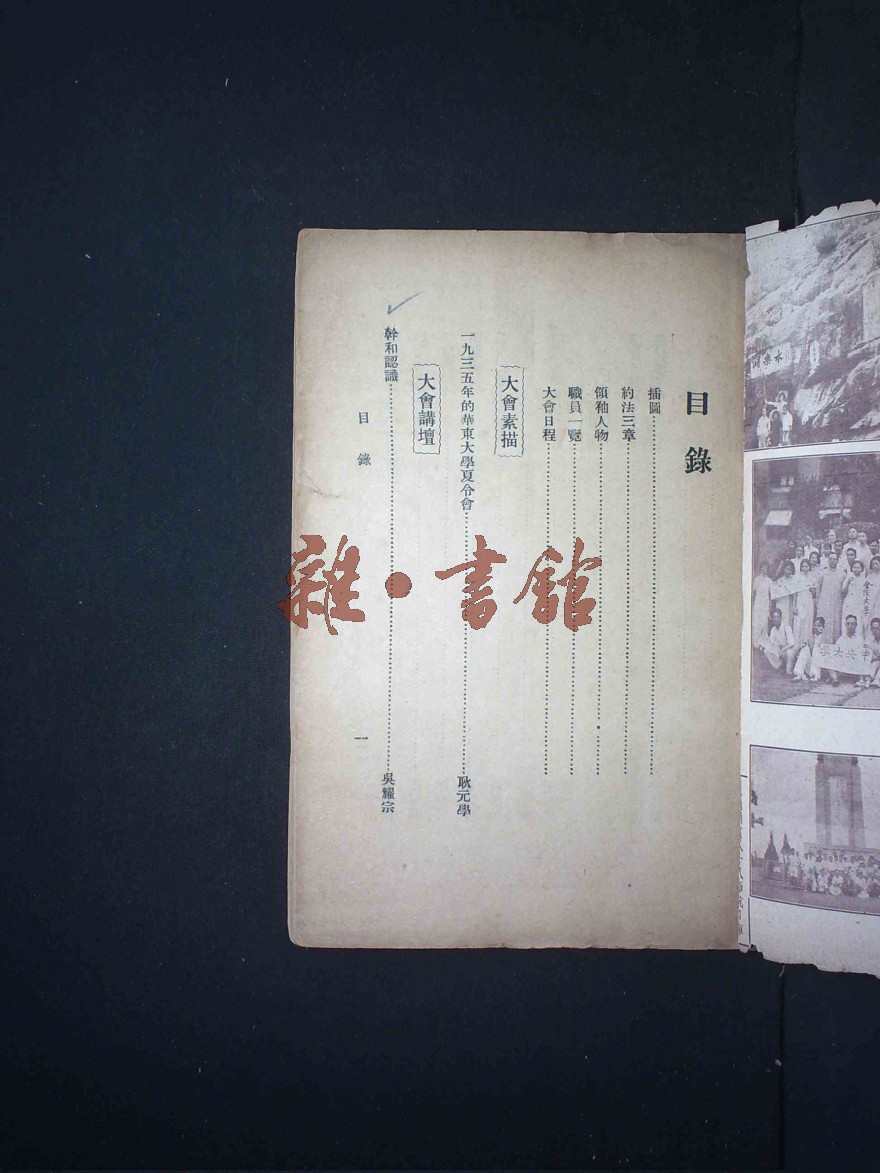 目錄
插圖
約法三章
領釉人物
職員一覽
大會日程
大會素描
一九三五年的華東大學夏令會 耿元學
大會講壇
幹和認識 吳耀宗
目錄
一
雜·書館
學大央中